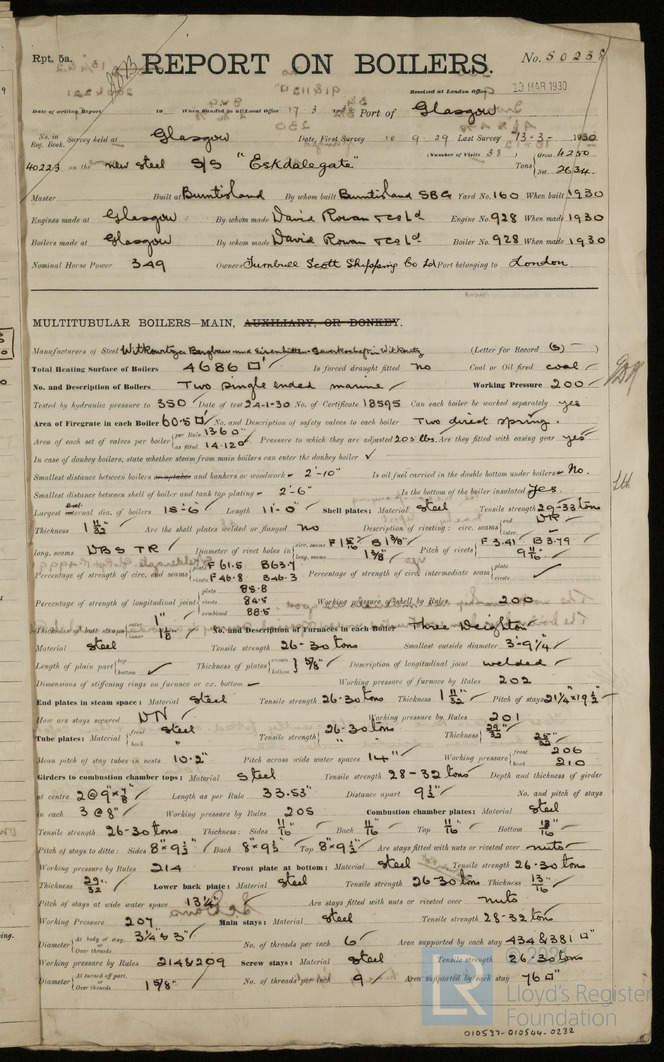 Rpt. 5a.
REPORT ON BOILERS.
No. 50238
Received at London Office 19 MAR 1930
Date of writing Report 19 When handed in at Local Office 17.3 Port of Glasgow
No. in Reg. Book. Survey held at Glasgow Date, First Survey 10.9.29 Last Survey 13-3- 1930
(Number of Visits 38) Gross 4250
40223 on the new steel S/S "Eskdalegate" Tons Net 2634.
Master Built at Burntisland By whom built Burntisland SBCo Yard No. 160 When built 1930
Engines made at Glasgow By whom made David Rowan & Co Ld Engine No. 928 When made 1930
Boilers made at Glasgow By whom made David Rowan & Co Ld Boiler No. 928 When made 1930
Nominal Horse Power 349 Owners Turnbull Scott Shipping Co Ld Port belonging to London
MULTITUBULAR BOILERS—MAIN, AUXILIARY, OR DONKEY.
Manufacturers of Steel Witkowitzer (Letter for Record (S) )
Total Heating Surface of Boilers 4686 □' Is forced draught fitted no Coal or Oil fired coal
No. and Description of Boilers Two single ended marine Working Pressure 200
Tested by hydraulic pressure to 350 Date of test 24-1-30 No. of Certificate 18595 Can each boiler be worked separately yes
Area of Firegrate in each Boiler 60.5 □' No. and Description of safety valves to each boiler Two direct spring.
Area of each set of valves per boiler per Rule 13.60 as fitted 14.120 Pressure to which they are adjusted 205 lbs. Are they fitted with easing gear yes
In case of donkey boilers, state whether steam from main boilers can enter the donkey boiler ✓
Smallest distance between boilers or uptakes and bunkers or woodwork 2'-10" Is oil fuel carried in the double bottom under boilers No.
Smallest distance between shell of boiler and tank top plating 2'-6" Is the bottom of the boiler insulated Yes.
Largest internal dia. of boilers 15'-6" Length 11'-0" Shell plates: Material Steel Tensile strength 29-33 tons
Thickness 1 11/32 Are the shell plates welded or flanged no Description of riveting: circ. seams end DR
long. seams DBS TR Diameter of rivet holes in circ. seams F 1 5/16 B 1 3/8" long. seams 1 3/8" Pitch of rivets F 3.41 B 3.79 9 11/16
Percentage of strength of circ. end seams plate F 61.5 B 63.7 rivets F 46.8 B 46.3 Percentage of strength of circ. intermediate seam plate rivets ✓
Percentage of strength of longitudinal joint plate 85.8 rivets 84.5 combined 88.5 Working pressure of shell by Rules 200
Thickness of butt straps outer 1" inner 1 1/8 No. and Description of Furnaces in each Boiler Three Deighton
Material Steel Tensile strength 26-30 tons Smallest outside diameter 3'-9 1/4"
Length of plain part top bottom Thickness of plates crown bottom 5/8" Description of longitudinal joint welded
Dimensions of stiffening rings on furnace or c.c. bottom Working pressure of furnace by Rules 202
End plates in steam space: Material Steel Tensile strength 26-30 tons Thickness 1 11/32 Pitch of stays 21 1/4" x 19 1/2"
How are stays secured DN Working pressure by Rules 201
Tube plates: Material front Steel back " Tensile strength 26-30 tons " Thickness 29/32 25/32
Mean pitch of stay tubes in nests 10.2" Pitch across wide water spaces 14" Working pressure front 206 back 210
Girders to combustion chamber tops: Material Steel Tensile strength 28-32 tons Depth and thickness of girder
at centre 2 @ 9" x 7/8" Length as per Rule 33.53" Distance apart 9 1/2" No. and pitch of stays
in each 3 @ 8" Working pressure by Rules 205 Combustion chamber plates: Material Steel
Tensile strength 26-30 tons Thickness: Sides 11/16 Back 11/16 Top 11/16 Bottom 13/16
Pitch of stays to ditto: Sides 8" x 9 1/2" Back 8" x 9 1/2" Top 8" x 9 1/2" Are stays fitted with nuts or riveted over nuts
Working pressure by Rules 214 Front plate at bottom: Material Steel Tensile strength 26-30 tons
Thickness 29/32 Lower back plate: Material Steel Tensile strength 26-30 tons Thickness 13/16
Pitch of stays at wide water space 13 1/4" Are stays fitted with nuts or riveted over nuts
Working Pressure 207 Main stays: Material Steel Tensile strength 28-32 tons
Diameter At body of stay, or Over threads 3 1/4 & 3" No. of threads per inch 6 Area supported by each stay 434 & 381 □"
Working pressure by Rules 214 & 209 Screw stays: Material Steel Tensile strength 26-30 tons
Diameter At turned off part, or Over threads 1 5/8" No. of threads per inch 9 Area supported by each stay 76 □"
Lloyd's Register Foundation
010537-010544-0232